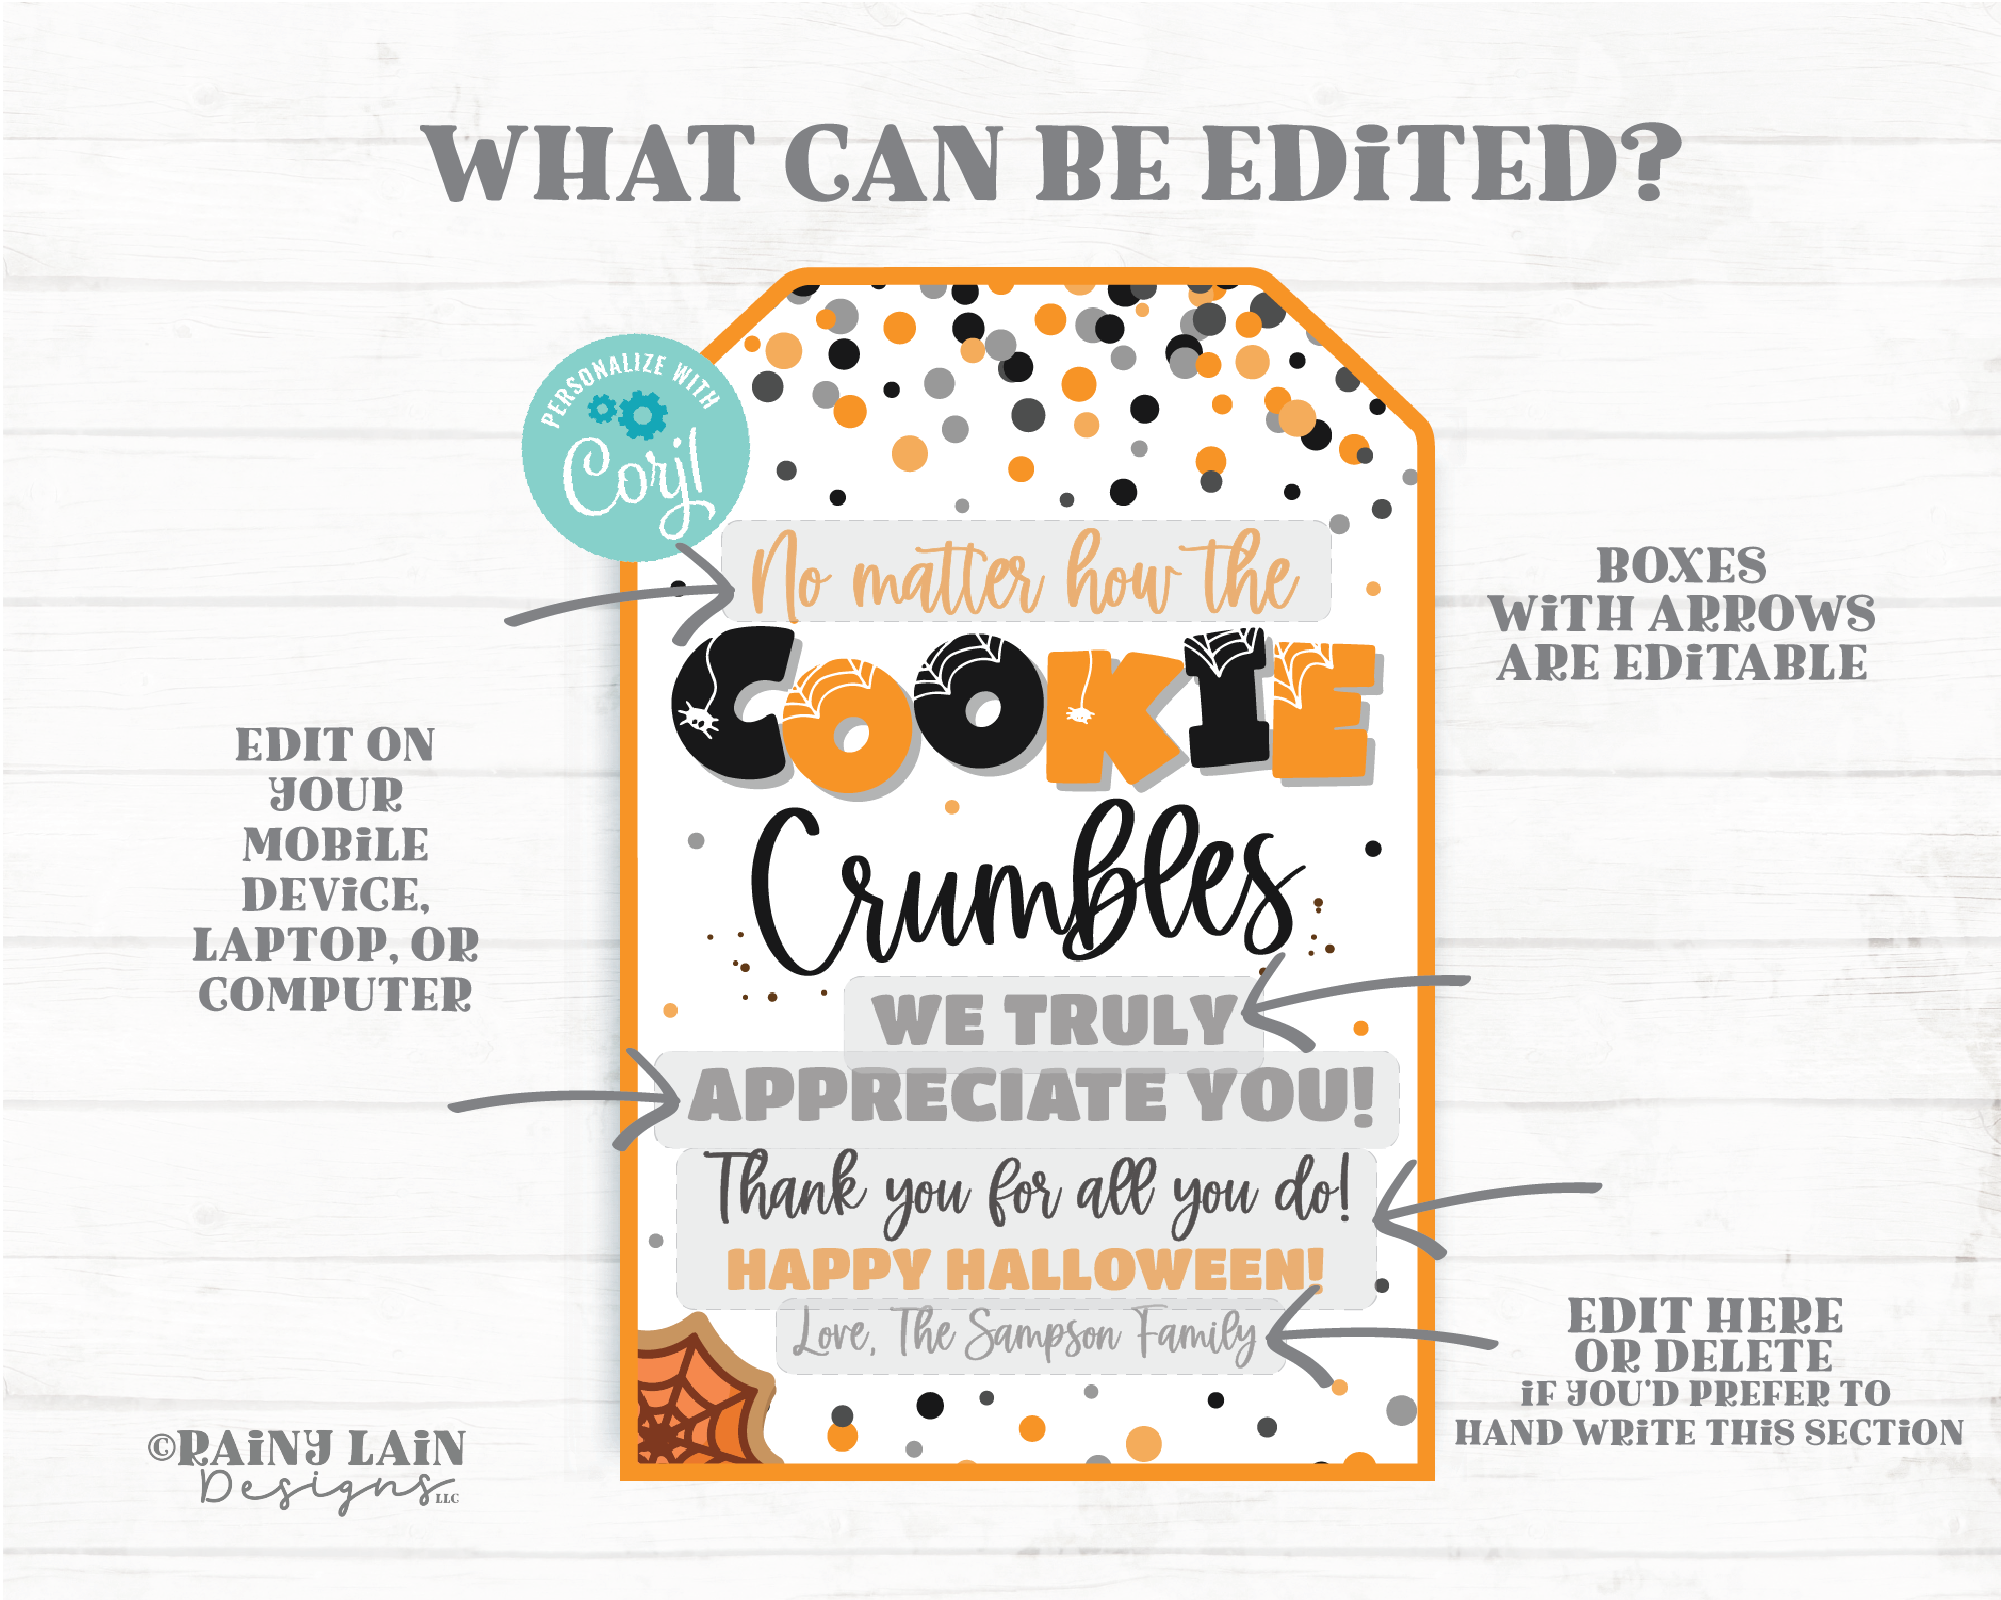 WHAT CAN BE EDiTED?
PERSONALIZE WITH
Corjl
No matter how the
COOKIE
Crumbles
WE TRULY
APPRECIATE YOU!
Thank you for all you do!
HAPPY HALLOWEEN!
Love, The Sampson Family
BOXES
WiTH ARROWS
ARE EDiTABLE
EDIT ON
YOUR
MOBiLE
DEViCE,
LAPTOP, OR
COMPUTER
EDIT HERE
OR DELETE
iF YOU'D PREFER TO
HAND WRiTE THiS SECTiON
©RAiNY LAiN
Designs LLC